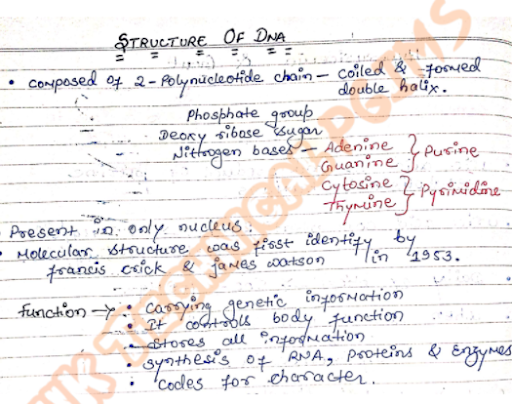 STRUCTURE OF DNA
• composed of 2-Polynucleotide chain – coiled & formed
double halix.
Phosphate group
Deoxy ribose sugar
Nitrogen bases – Adenine
Guanine } Purine
Cytosine
Thymine } Pyrimidine
• Present in only nucleus.
• Molecular structure was first identify by
francis crick & james watson in 1953.
Function → • Carrying genetic information
• It controls body function
• Stores all information
• Synthesis of RNA, Proteins & Enzymes
• Codes for character.